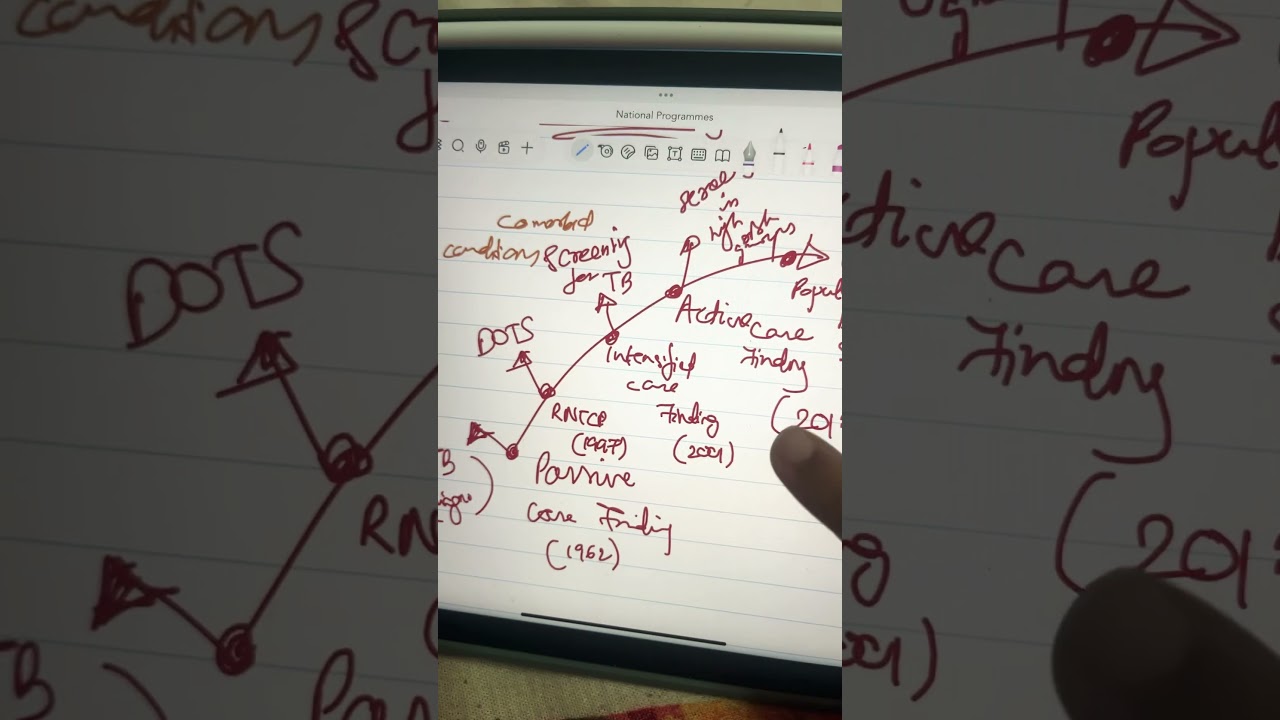 National Programmes
in
high
comorbid
conditions screening
for TB
Popul
Active case
Finding
(201
DOTS
Intensified
case
Finding
(2001)
RNTCP
(1997)
Passive
case Finding
(1962)
TB